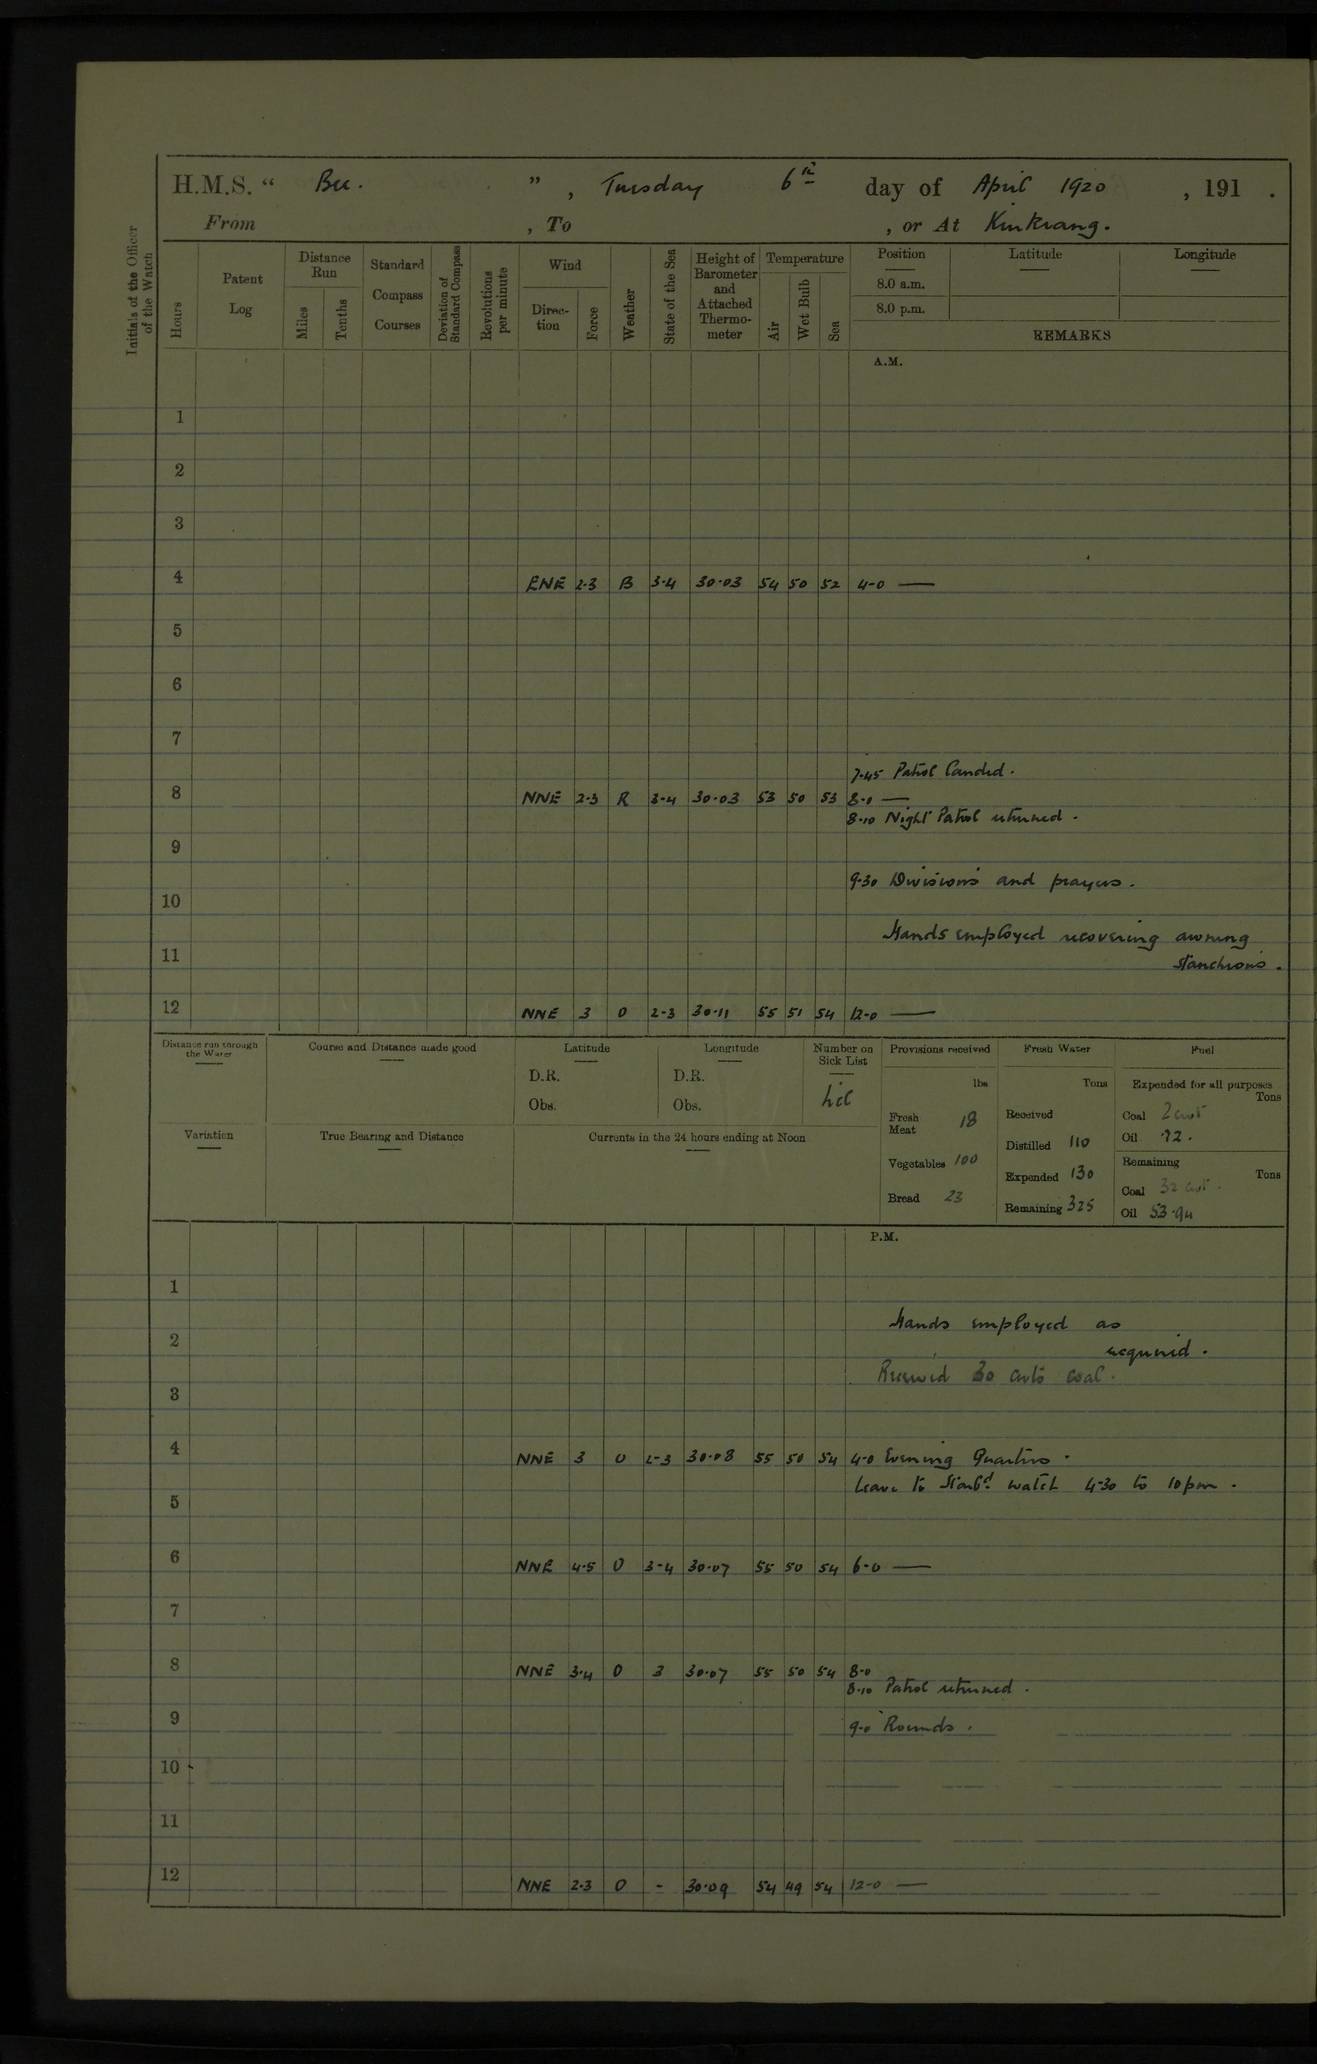 H.M.S. “ Bee. ” , Tuesday 6th day of April 1920 , 191 .
From , To , or At Kinkiang.
Initials of the Officer of the Watch
Hours
Patent Log
Distance Run
Miles
Tenths
Standard Compass Courses
Deviation of Standard Compass
Revolutions per minute
Wind
Direction
Force
Weather
State of the Sea
Height of Barometer and Attached Thermometer
Temperature
Air
Wet Bulb
Sea
Position
8.0 a.m.
8.0 p.m.
Latitude
Longitude
REMARKS
A.M.
1
2
3
4 ENE 2·3 B 3·4 30·03 54 50 52 4-0 —
5
6
7
7·45 Patrol landed.
8 NNE 2·3 R 3-4 30·03 53 50 53 8-0 —
8·10 Night Patrol returned.
9
9·30 Divisions and prayers.
10
Hands employed recovering awning
11 stanchions.
12 NNE 3 O 2-3 30·11 55 51 54 12-0 —
Distance run through the Water
Course and Distance made good
Latitude
D.R.
Obs.
Longitude
D.R.
Obs.
Number on Sick List
Nil
Variation
True Bearing and Distance
Currents in the 24 hours ending at Noon
Provisions received
lbs
Fresh Meat 18
Vegetables 100
Bread 23
Fresh Water
Tons
Received
Distilled 110
Expended 130
Remaining 325
Fuel
Expended for all purposes
Tons
Coal 2 cwt
Oil ·92.
Remaining
Tons
Coal 32 cwt.
Oil 53·94
P.M.
1
Hands employed as
2 required.
Received 30 cwts coal.
3
4 NNE 3 O 2-3 30·08 55 50 54 4-0 Evening Quarters.
Leave to Starbd watch 4-30 to 10pm.
5
6 NNE 4·5 O 3-4 30·07 55 50 54 6-0 —
7
8 NNE 3·4 O 3 30·07 55 50 54 8-0
8·10 Patrol returned.
9 9-0 Rounds.
10
11
12 NNE 2·3 O - 30·09 54 49 54 12-0 —